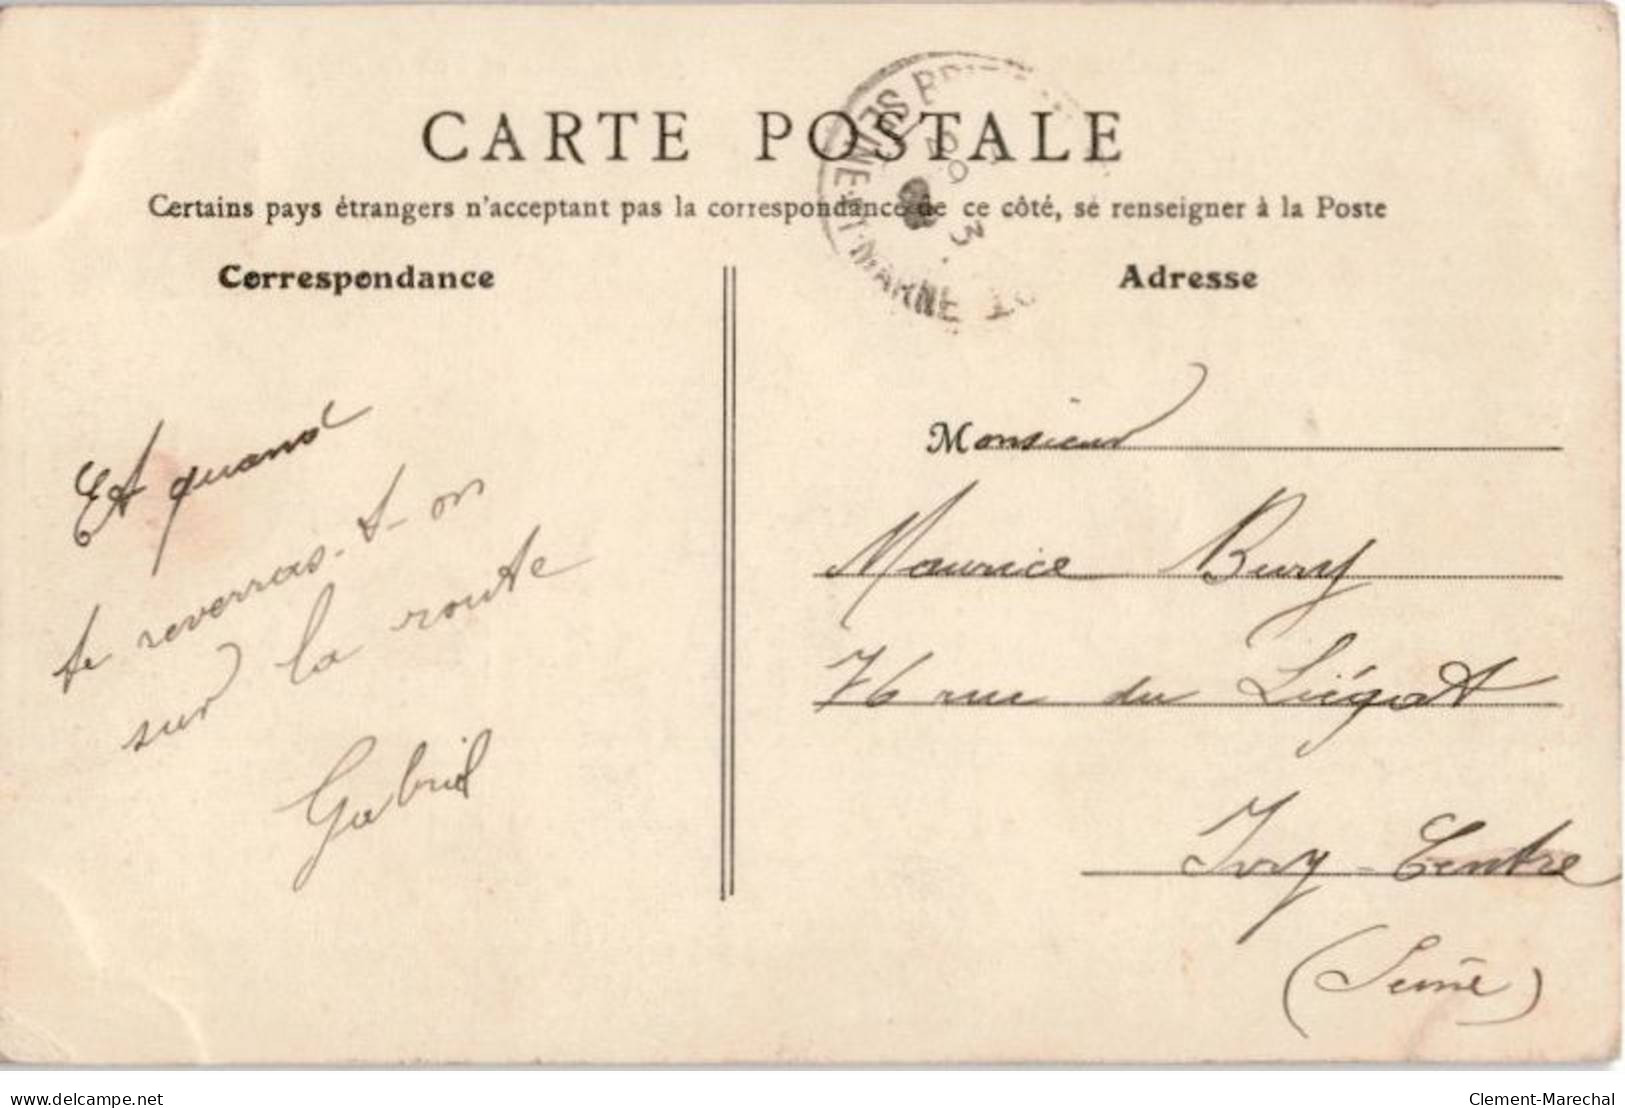 CARTE POSTALE
Certains pays étrangers n'acceptant pas la correspondance de ce côté, se renseigner à la Poste
Correspondance
Adresse
SEINE-ET-MARNE
Et quand
te reverras-t-on
sur la route
Gabriel
Monsieur
Maurice Bury
76 rue du Liégat
Ivry-Centre
(Seine)
delcampe.net
Clement-Marechal